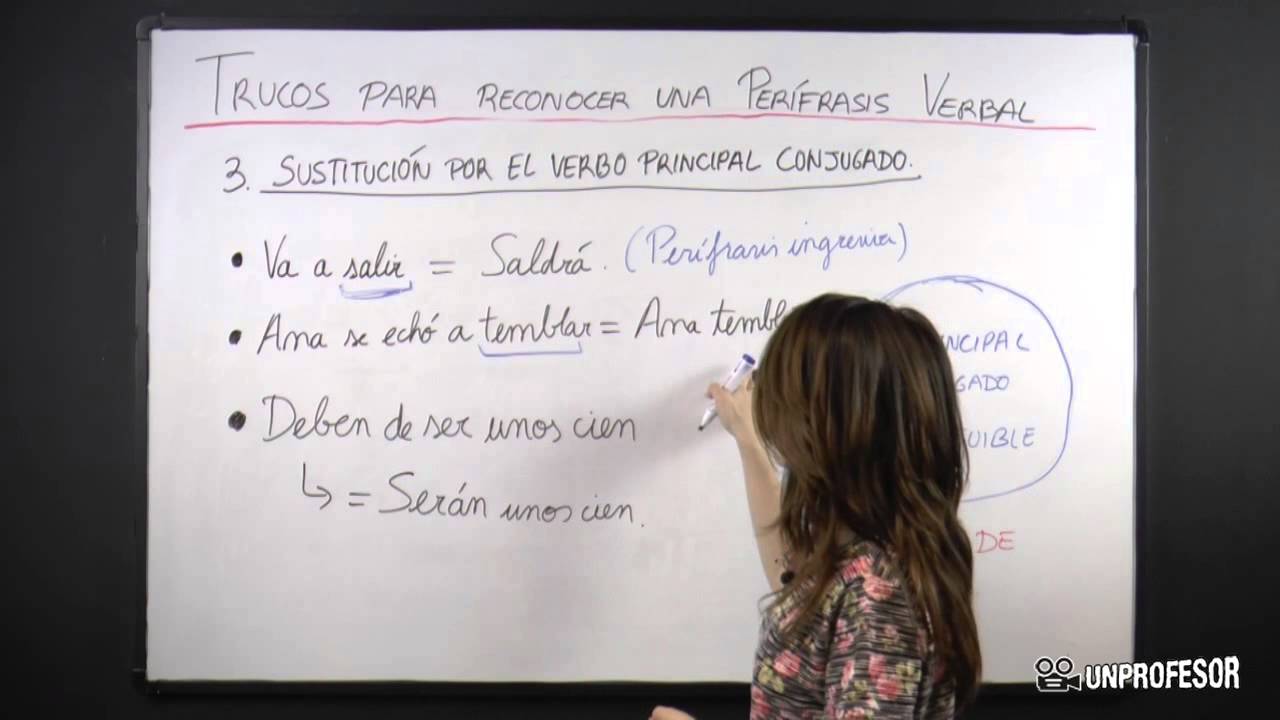 TRUCOS PARA RECONOCER UNA PERÍFRASIS VERBAL
3. SUSTITUCIÓN POR EL VERBO PRINCIPAL CONJUGADO.
• Va a salir = Saldrá. (Perífrasis ingresiva)
• Ana se echó a temblar = Ana
• Deben de ser unos cien
↳ = Serán unos cien.
DE
UNPROFESOR